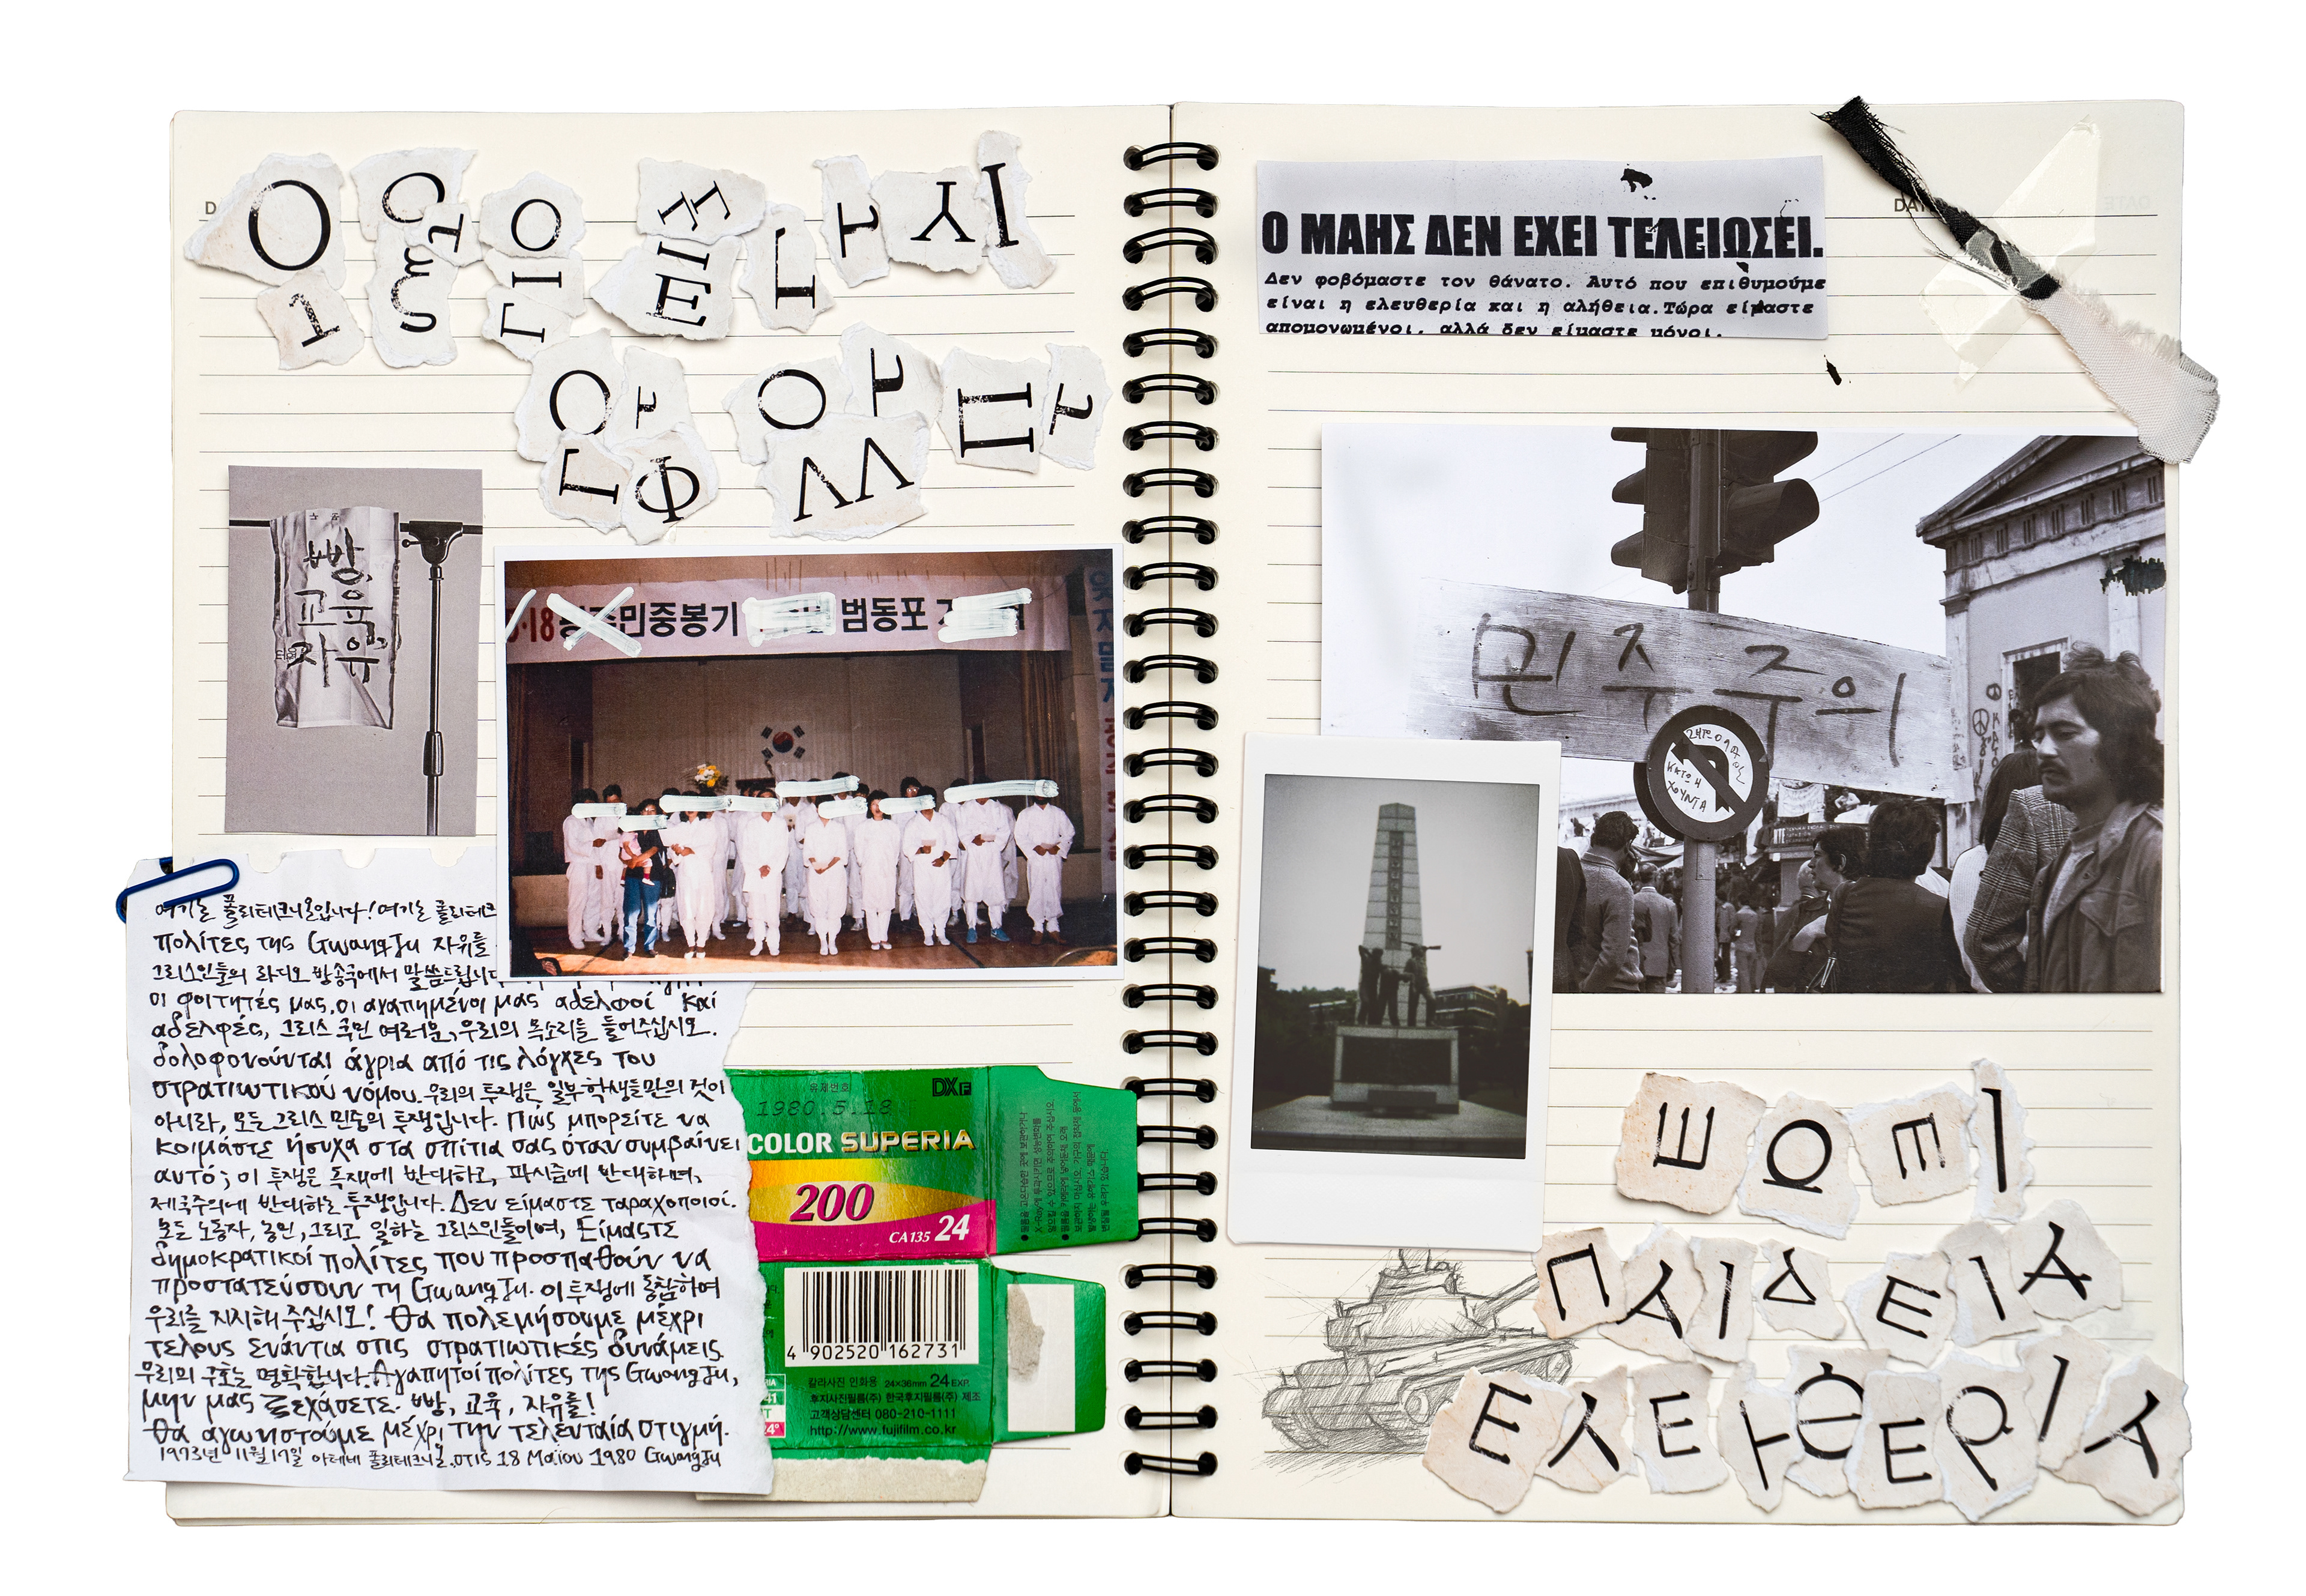 Ο ΜΑΗΣ ΔΕΝ ΕΧΕΙ ΤΕΛΕΙΩΣΕΙ.
Δεν φοβόμαστε τον θάνατο. Αυτό που επιθυμούμε
είναι η ελευθερία και η αλήθεια.Τώρα είμαστε
απομονωμένοι, αλλά δεν είμαστε μόνοι.
빵
교육
자유
5·18 민중봉기 범동포
여기는 폴리테크니온입니다! 여기는 폴리테크
πολίτες της Gwangju 자유를
그리스인들의 라디오 방송국에서 말씀드립니다
οι φοιτητές μας, οι αγαπημένοι μας αδελφοί και
αδελφές, 그리스 국민 여러분, 우리의 목소리를 들어주십시오.
δολοφονούνται άγρια από τις λόγχες του
στρατιωτικού νόμου. 우리의 투쟁은 일부 학생들만의 것이
아니라, 모든 그리스 민중의 투쟁입니다. Πώς μπορείτε να
κοιμάστε ήσυχα στα σπίτια σας όταν συμβαίνει
αυτό; 이 투쟁은 독재에 반대하고, 파시즘에 반대하며,
제국주의에 반대하는 투쟁입니다. Δεν είμαστε ταραχοποιοί.
모든 노동자, 농민, 그리고 일하는 그리스인들이여, Είμαστε
δημοκρατικοί πολίτες που προσπαθούν να
προστατεύσουν τη Gwangju. 이 투쟁에 동참하여
우리를 지지해 주십시오! Θα πολεμήσουμε μέχρι
τέλους ενάντια στις στρατιωτικές δυνάμεις.
우리의 구호는 명확합니다. Αγαπητοί πολίτες της Gwangju,
μην μας ξεχάσετε. 빵, 교육, 자유를!
Θα αγωνιστούμε μέχρι την τελευταία στιγμή.
1973년 11월 17일 아테네 폴리테크니온, στις 18 Μαΐου 1980 Gwangju
유제번호
DX
1980.5.18
COLOR SUPERIA
200
CA135 24
4 902520 162731
칼라사진 인화용 24×36mm 24 EXP.
후지사진필름(주) 한국후지필름(주) 제조
고객상담센터 080-210-1111
http://www.fujifilm.co.kr
DATE
민주주의
ΚΑΤΩ Η
ΧΟΥΝΤΑ
ΨΩΜΙ
ΠΑΙΔΕΙΑ
ΕΛΕΥΘΕΡΙΑ